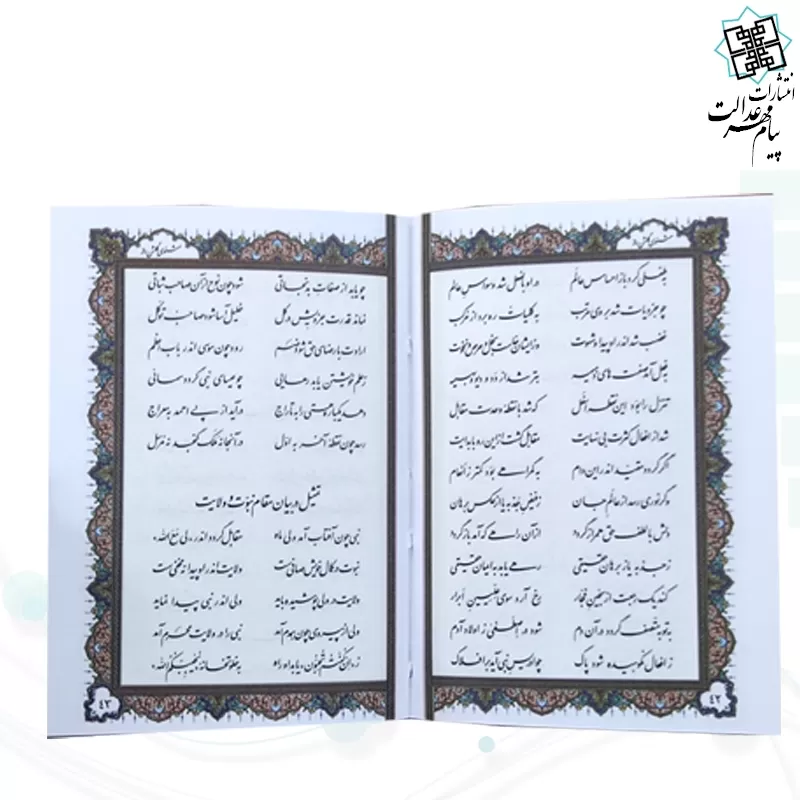 انتشارات
پیام مهر عدالت
مثنوی گلشن راز
بطفلی کرد باز احساس عالم در او بالفعل شد وسواس عالم
چو جزویات شد بر وی مرتب به کلیات ره برد از مرکب
غضب شد اندر او پیدا و شهوت وز ایشان خاست بخل و حرص و نخوت
بفعل آمد صفت های ذمیمه بتر شد از دد و دیو و بهیمه
تنزل را بود این نقطه اسفل که شد با نقطه وحدت مقابل
شد از افعال کثرت بی نهایت مقابل گشت از این رو با بدایت
اگر گردد مقید اندر این دام به گمراهی بود کمتر ز انعام
وگر نوری رسد از عالم جان ز فیض جذبه یا از عکس برهان
دلش با لطف حق همراز گردد از آن راهی که آمد باز گردد
ز جذبه یا ز برهان حقیقی رهی یابد به ایمان حقیقی
کند یک رجعت از سجین فجار رخ آرد سوی علیین ابرار
به توبه متصف گردد در آن دم شود در اصطفی ز اولاد آدم
ز افعال نکوهیده شود پاک چو ادریس نبی آید بر افلاک
٤٢
مثنوی گلشن راز
چو یابد از صفات بد نجاتی شود چون نوح از آن صاحب ثباتی
نماند قدرت جزویش در کل خلیل آسا شود صاحب توکل
ارادت با رضای حق شود ضم رود چون موسی اندر باب اعظم
ز علم خویشتن یابد رهایی چو عیسای نبی گردد سمائی
دهد یکباره هستی را به تاراج درآید از پی احمد به معراج
رسد چون نقطه آخر به اول در آنجا نه ملک گنجد نه مرسل
تمثیل در بیان مقام نبوت و ولایت
نبی چون آفتاب آمد ولی ماه مقابل گردد اندر «لی مع الله»
نبوت در کمال خویش صافی است ولایت اندر او پیدا نه مخفی است
ولایت در ولی پوشیده باید ولی اندر نبی پیدا نماید
ولی از پیروی چون همدم آمد نبی را در ولایت محرم آمد
ز «ان کنتم تحبون» یابد او راه به خلوتخانه «یحببکم الله»
٤٣